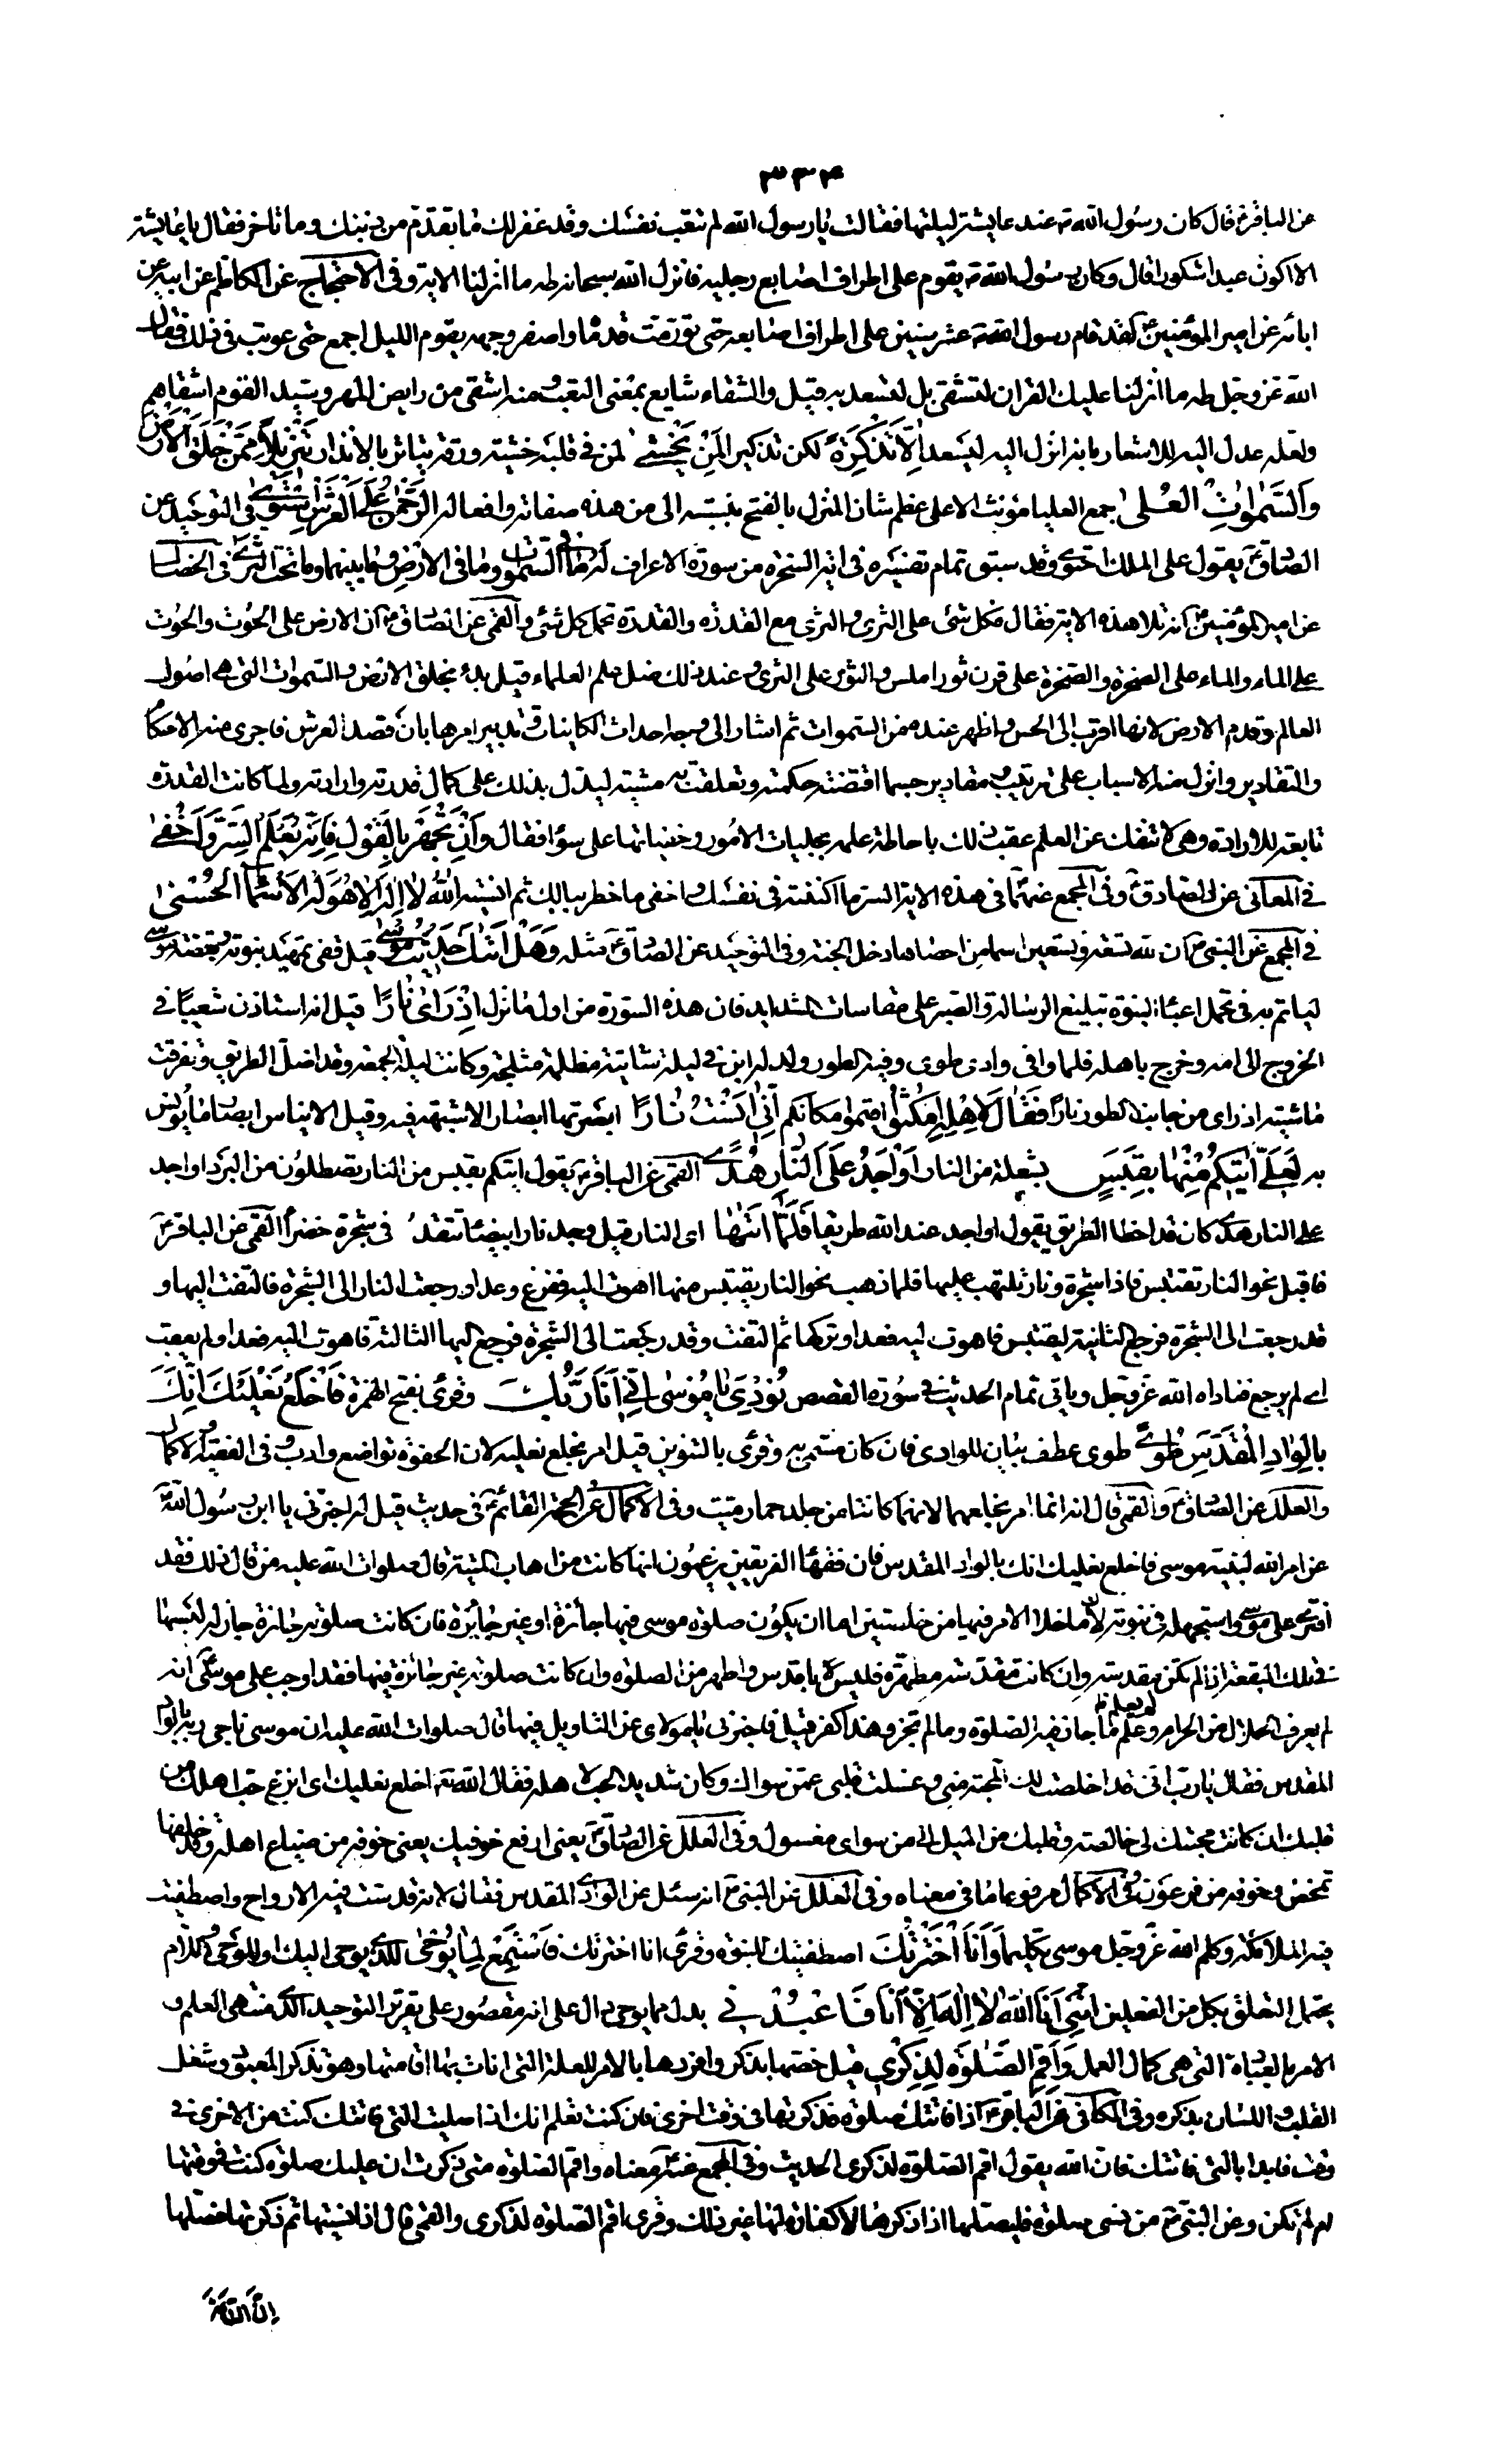 ٣٣٤
عن الباقر ع قال كان رسول الله ص عند عايشة ليلتها فقالت يا رسول الله لم تتعب نفسك وقد غفر لك ما تقدم من ذنبك وما تأخر فقال يا عايشة
الا اكون عبدا شكورا قال وكان رسول الله ص يقوم على اطراف اصابع رجليه فانزل الله سبحانه طه ما انزلنا الاية وفى الاحتجاج عن الكاظم عن ابيه عن
ابائه عن امير المؤمنين ع لقد قام رسول الله ص عشر سنين على اطراف اصابعه حتى تورمت قدماه واصفر وجهه يقوم الليل اجمع حتى عوتب فى ذلك فقال
الله عز وجل طه ما انزلنا عليك القران لتشقى بل لتسعد به قيل والشقاء شايع بمعنى التعب ومنه اشقى من رايض المهر وسيد القوم اشقاهم
ولعله عدل اليه للاشعار بانه انزل اليه ليسعد اِلّا تَذْكِرَةً لكن تذكيرا لِمَنْ يَخْشى لمن فى قلبه خشية ورقة يتاثر بالانذار تَنْزيلًا مِمَّنْ خَلَقَ الْاَرْضَ
وَالسَّمٰوٰاتِ الْعُلى جمع العليا مؤنث الاعلى عظم شان المنزل بالفتح بنسبته الى من هذه صفاته وافعاله اَلرَّحْمٰنُ عَلَى الْعَرْشِ اسْتَوى فى التوحيد عن
الصادق ع يقول على الملك احتوى وقد سبق تمام تفسيره فى اية السخرة من سورة الاعراف لَهُ مٰا فى السَّمٰوٰات وما فى الارض وما بينهما وما تحت الثرى فى الخصال
عن امير المؤمنين ع انه تلا هذه الاية فقال فكل شئ على الثرى والثرى مع القدرة والقدرة تحمل كل شئ والقمى عن الصادق ع ان الارض على الحوت والحوت
على الماء والماء على الصخرة والصخرة على قرن ثور املس والثور على الثرى وعند ذلك ضل علم العلماء قيل بدء بخلق الارض والسموات التى هى اصول
العالم وقدم الارض لانها اقرب الى الحس واظهر عنده من السموات ثم اشار الى وجه احداث الكاينات وتدبير امرها بان قصد العرش فاجرى منه الاحكام
والتقادير وانزل منه الاسباب على ترتيب ومقادير حسبما اقتضته حكمته وتعلقت به مشيته ليدل بذلك على كمال قدرته وارادته ولما كانت القدرة
تابعة للارادة وهى لا تنفك عن العلم عقب ذلك باحاطة علمه بجليات الامور وخفياتها على سواء فقال وَاِنْ تَجْهَرْ بِالْقَوْلِ فَاِنَّهُ يَعْلَمُ السِّرَّ وَاَخْفى
فى المعانى عن الصادق ع وفى المجمع عنهما ع فى هذه الاية السر ما اكننته فى نفسك واخفى ما خطر ببالك ثم انسيته اَللّٰهُ لٰا اِلٰهَ اِلّٰا هُوَ لَهُ الْاَسْمٰاءُ الْحُسْنى
فى المجمع عن النبى ص ان لله تسعة وتسعين اسما من احصاها دخل الجنة وفى التوحيد عن الصادق ع مثله وَهَلْ اَتٰاكَ حَديثُ مُوسى قيل قفى تمهيد نبوته بقصة موسى
لياتم به فى تحمل اعباء النبوة وتبليغ الرسالة والصبر على مقاسات الشدايد فان هذه السورة من اول ما نزل اِذْ رَاى نٰارًا قيل انه استاذن شعيبا فى
الخروج الى امه وخرج باهله فلما وافى وادى طوى وفيه الطور ولد له ابن فى ليلة شاتية مظلمة مثلجة وكانت ليلة الجمعة وقد اضل الطريق وتفرقت
ماشيته اذ راى من جانب الطور نارا فَقٰالَ لِاَهْلِهِ امْكُثُوا اقيموا مكانكم اِنّى اٰنَسْتُ نٰارًا ابصرتها ابصارا لا شبهة فيه وقيل الايناس ابصار ما يونس
به لَعَلّى اٰتيكُمْ مِنْهٰا بِقَبَسٍ بشعلة من النار اَوْ اَجِدُ عَلَى النّٰارِ هُدًى القمى عن الباقر ع يقول اتيكم بقبس من النار تصطلون من البرد او اجد
على النار هدى كان قد اخطا الطريق يقول او اجد عند الله طريقا فَلَمّٰا اَتٰيهٰا اى النار قيل وجد نارا بيضاء تتقد فى شجرة خضراء القمى عن الباقر ع
فاقبل نحو النار تقتبس فاذا شجرة ونار تلتهب عليها فلما ذهب نحو النار يقتبس منها اهوت اليه ففزع وعدا ورجعت النار الى الشجرة فالتفت اليها و
قد رجعت الى الشجرة فرجع الثانية ليقتبس فاهوت اليه فعدا وتركها ثم التفت وقد رجعت الى الشجرة فرجع اليها الثالثة فاهوت اليه فعدا ولم يعقب
اى لم يرجع فناداه الله عز وجل وياتى تمام الحديث فى سورة القصص نُودِىَ يٰا مُوسى اِنّى اَنَا رَبُّكَ وقرئ بفتح الهمزة فَاخْلَعْ نَعْلَيْكَ اِنَّكَ
بِالْوٰادِ الْمُقَدَّسِ طُوًى طوى عطف بيان للوادى فان كان مسمى به وقرئ بالتنوين قيل امر بخلع نعليه لان الحفوة تواضع وادب وفى الفقيه والاكمال
والعلل عن الصادق ع والقمى قال انه انما امر بخلعهما لانهما كانتا من جلد حمار ميت وفى الاكمال عن الحجة القائم ع فى حديث قيل له اخبرنى يا ابن رسول الله ص
عن امر الله لنبيه موسى فاخلع نعليك انك بالواد المقدس فان فقهاء الفريقين يزعمون انها كانت من اهاب الميتة قال صلوات الله عليه من قال ذلك فقد
افترى على موسى واستجهله فى نبوته لانه ما خلا الامر فيها من خطيئتين اما ان يكون صلوة موسى فيها جائزة او غير جائزة فان كانت صلوته جائزة جاز له لبسهما
فى تلك البقعة اذ لم تكن مقدسة وان كانت مقدسة مطهرة فليس باقدس واطهر من الصلوة وان كانت صلوته غير جائزة فيها فقد اوجب على موسى ع انه
لم يعرف الحلال من الحرام وعلم ما جاز فيه الصلوة وما لم تجز وهذا كفر قيل فاخبرنى يا مولاى عن التاويل فيها قال صلوات الله عليه ان موسى ناجى ربه بالواد
المقدس فقال يا رب انى قد اخلصت لك المحبة منى وغسلت قلبى عمن سواك وكان شديد الحب لاهله فقال الله تع اخلع نعليك اى انزع حب اهلك من
قلبك ان كانت محبتك لى خالصة وقلبك من الميل الى من سواى مغسول وفى العلل عن الصادق ع يعنى ارفع خوفيك يعنى خوفه من ضياع اهله وقد خلفها
تمخض وخوفه من فرعون وفى الاكمال مرفوعا ما فى معناه وفى العلل عن النبى ص انه سئل عن الوادى المقدس فقال لانه قدست فيه الارواح واصطفيت
فيه الملائكة وكلم الله عز وجل موسى تكليما وَاَنَا اخْتَرْتُكَ اصطفيتك للنبوة وقرئ انا اخترناك فَاسْتَمِعْ لِمٰا يُوحى للذى يوحى اليك او للوحى واللام
يحتمل التعلق بكل من الفعلين اِنَّنى اَنَا اللّٰهُ لٰا اِلٰهَ اِلّٰا اَنَا فَاعْبُدْنى بدل مما يوحى دال على انه مقصور على تقرير التوحيد الذى منتهى العلم و
الامر بالعبادة التى هى كمال العمل وَاَقِمِ الصَّلٰوةَ لِذِكْرى قيل خصها بذكر وافردها بالامر للعلة التى اناط بها اقامتها وهو تذكر المعبود وشغل
القلب واللسان بذكره وفى الكافى عن الباقر ع اذا فاتتك صلوة فذكرتها فى وقت اخرى فان كنت تعلم انك اذا صليت التى فاتتك كنت من الاخرى فى
وقت فابدا بالتى فاتتك فان الله يقول اقم الصلوة لذكرى الحديث وفى المجمع عنه ع معناه واقم الصلوة متى ذكرت ان عليك صلوة كنت فى وقتها
ام لم تكن وعن النبى ص من نسى صلوة فليصلها اذا ذكرها لا كفارة لها غير ذلك وقرئ اقم الصلوة لذكرى والقمى قال اذا نسيتها ثم ذكرتها فصلها
اِنَّ السّٰاعَةَ